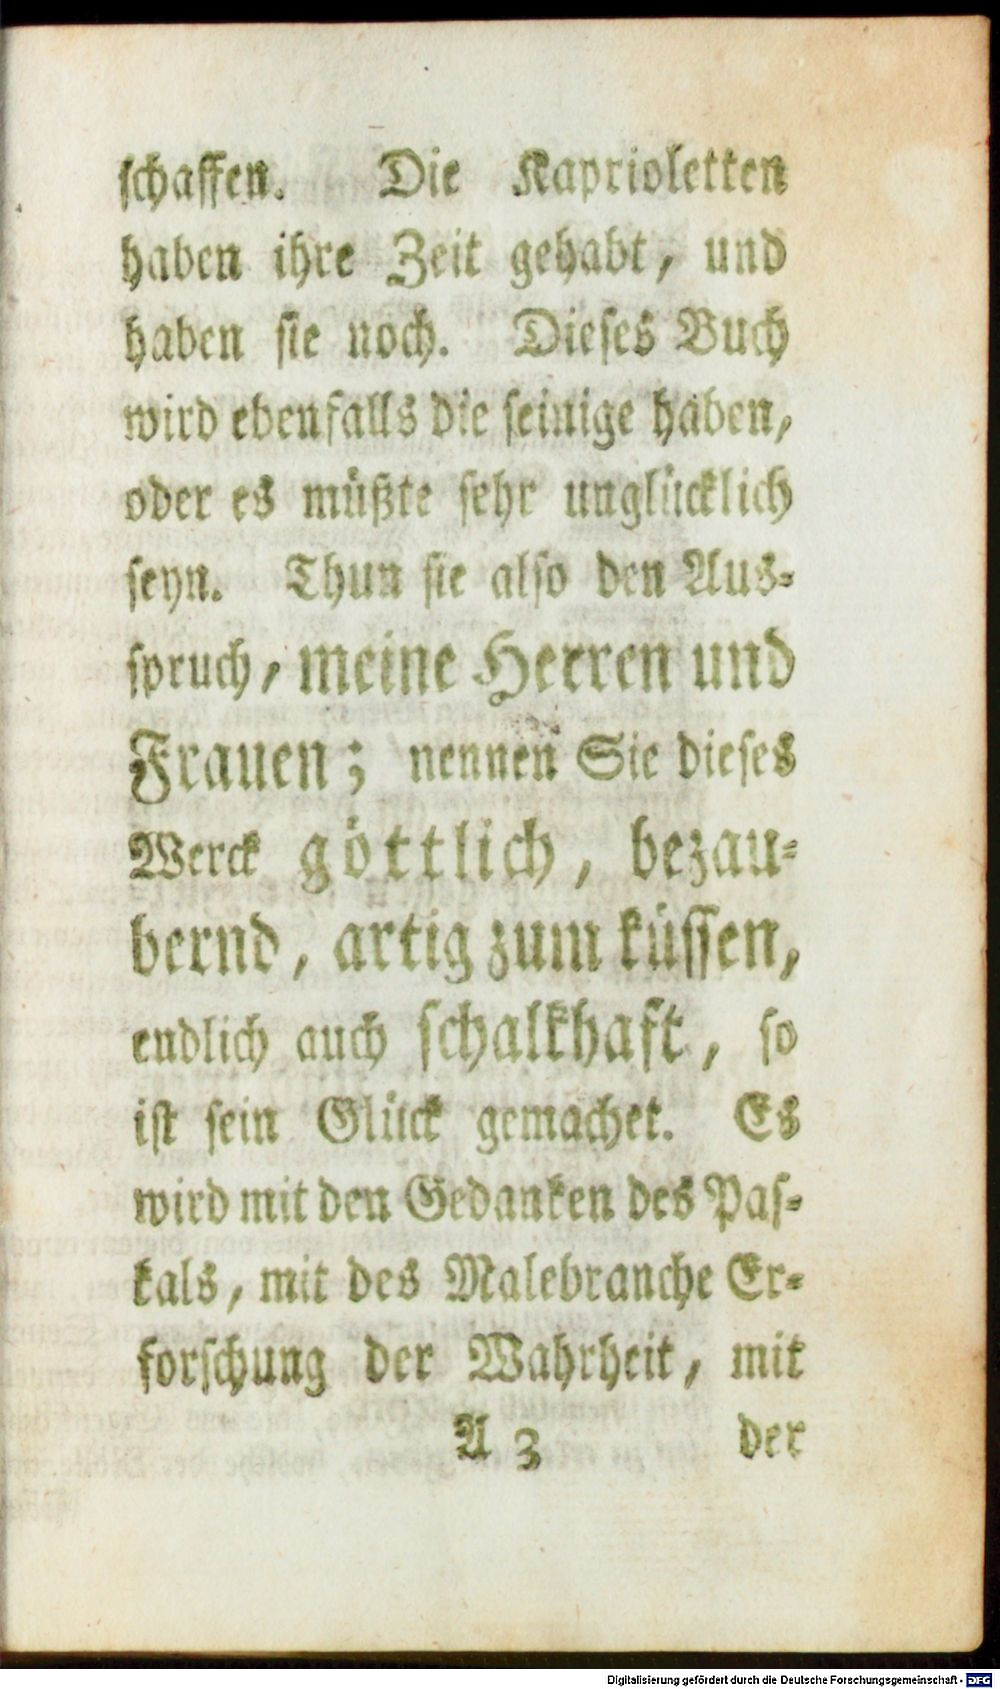 schaffen. Die Kaprioletten
haben ihre Zeit gehabt, und
haben sie noch. Dieses Buch
wird ebenfalls die seinige haben,
oder es müßte sehr unglücklich
seyn. Thun sie also den Aus-
spruch, meine Herren und
Frauen; nennen Sie dieses
Werck göttlich, bezau-
bernd, artig zum küssen,
endlich auch schalkhaft, so
ist sein Glück gemachet. Es
wird mit den Gedanken des Pas-
kals, mit des Malebranche Er-
forschung der Wahrheit, mit
A 3 der
Digitalisierung gefördert durch die Deutsche Forschungsgemeinschaft - DFG